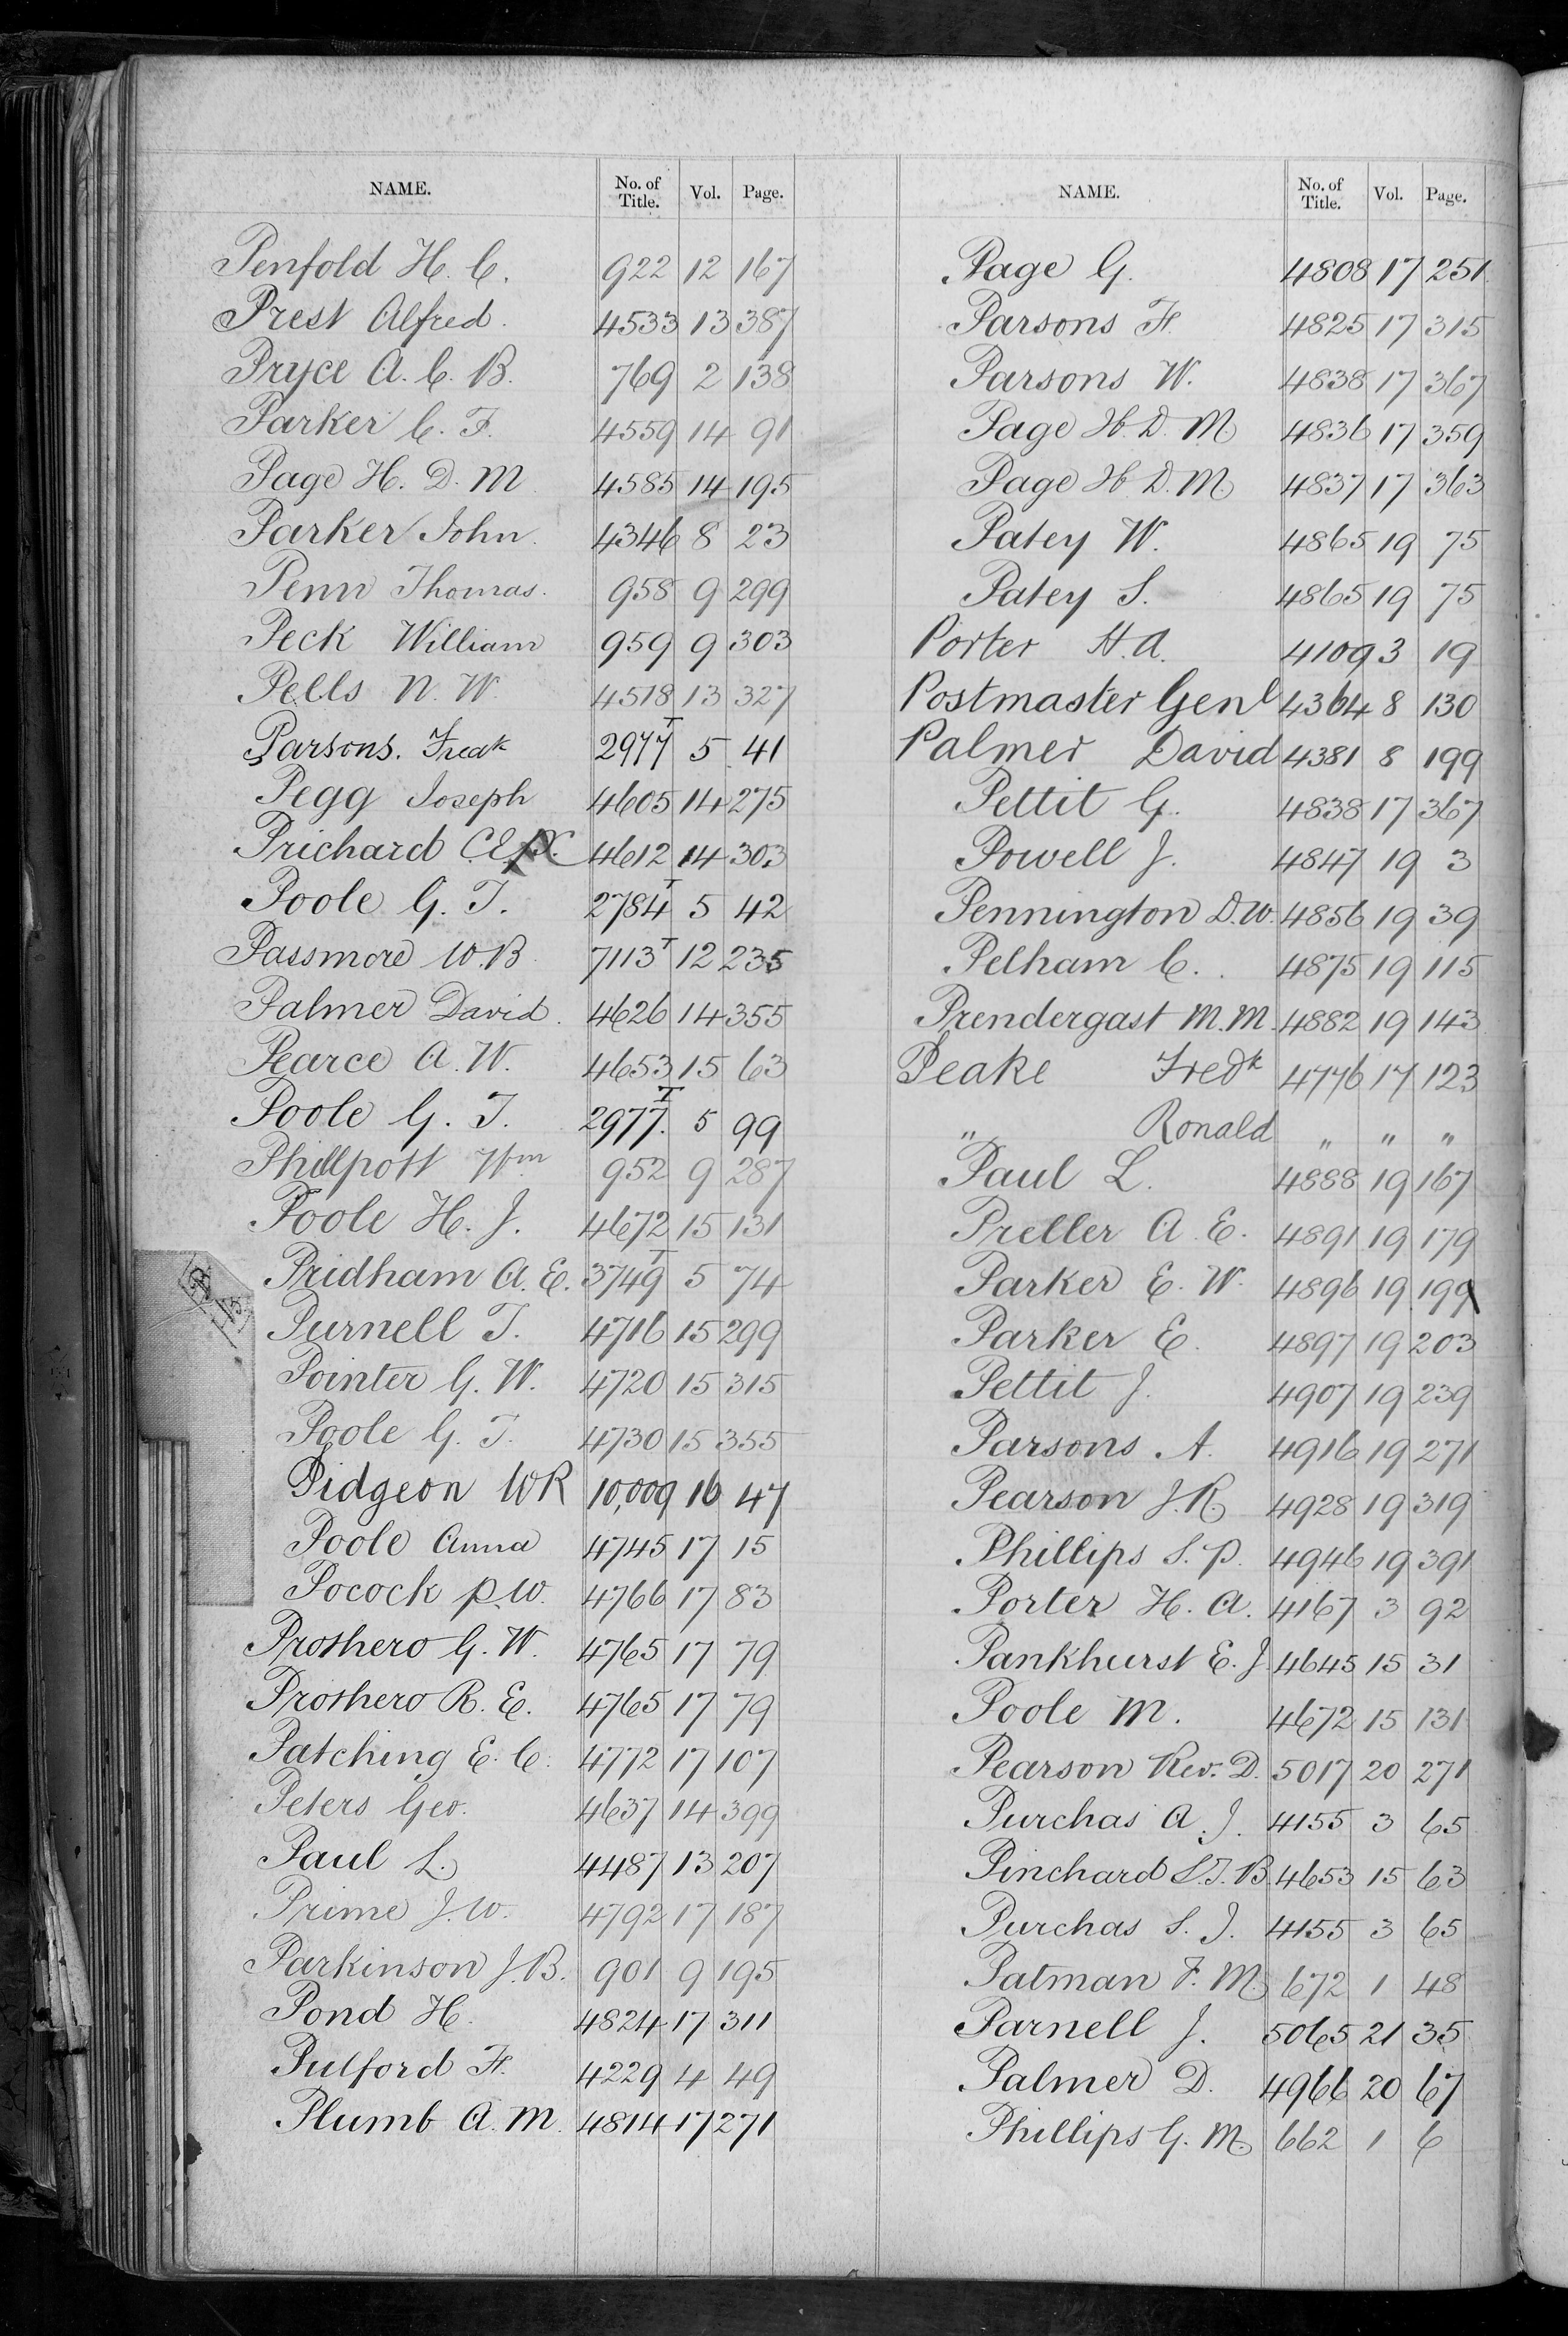 NAME. No. of Title. Vol. Page.
Penfold H. C. 922 12 167
Prest Alfred. 4533 13 387
Pryce A. C. B. 769 2 138
Parker C. F. 4559 14 91
Page H. D. M 4585 14 195
Parker John. 4346 8 23
Penn Thomas. 958 9 299
Peck William 959 9 303
Pells N. W. 4518 13 327
Parsons. Fredk 2977T 5 41
Pegg Joseph 4605 14 275
Prichard C.E. 4612 14 303
Poole G. T. 2784T 5 42
Passmore W.B. 7113T 12 235
Palmer David. 4626 14 355
Pearce A. W. 4653 15 63
Poole G. T. 2977.T 5 99
Phillpott Wm 952 9 287
Poole H. J. 4672 15 131
Pridham A. E. 3749T 5 74
Purnell T. 4716 15 299
Pointer G. W. 4720 15 315
Poole G. T. 4730 15 355
Pidgeon WR 10,009 16 47
Poole Anna 4745 17 15
Pocock P.W. 4766 17 83
Prothero G. W. 4765 17 79
Prothero R. E. 4765 17 79
Patching E. C. 4772 17 107
Peters Geo. 4637 14 399
Paul L. 4487 13 207
Prime J. W. 4792 17 187
Parkinson J. B. 901 9 195
Pond H. 4824 17 311
Pulford H. 4229 4 49
Plumb A. M. 4814 17 271
NAME. No. of Title. Vol. Page.
Page G. 4808 17 251
Parsons H. 4825 17 315
Parsons W. 4838 17 367
Page H. D. M. 4836 17 359
Page H. D. M. 4837 17 363
Patey W. 4865 19 75
Patey S. 4865 19 75
Porter H.A. 4109 3 19
Postmaster Genl 4364 8 130
Palmer David 4381 8 199
Pettit G. 4838 17 367
Powell J. 4847 19 3
Pennington D.W. 4856 19 39
Pelham C. 4875 19 115
Prendergast M.M. 4882 19 143
Peake Fredk 4776 17 123
" Ronald " " "
Paul L. 4888 19 167
Preller A. E. 4891 19 179
Parker E. W. 4896 19 199
Parker E. 4897 19 203
Pettit J. 4907 19 239
Parsons A. 4916 19 271
Pearson J. R. 4928 19 319
Phillips S. P. 4946 19 391
Porter H. A. 4167 3 92
Pankhurst E. J. 4645 15 31
Poole M. 4672 15 131
Pearson Rev. D. 5017 20 271
Purchas A. J. 4155 3 65
Pinchard L.T.B. 4653 15 63
Purchas S. J. 4155 3 65
Patman F. M. 672 1 48
Parnell J. 5065 21 35
Palmer D. 4966 20 67
Phillips G. M. 662 1 6